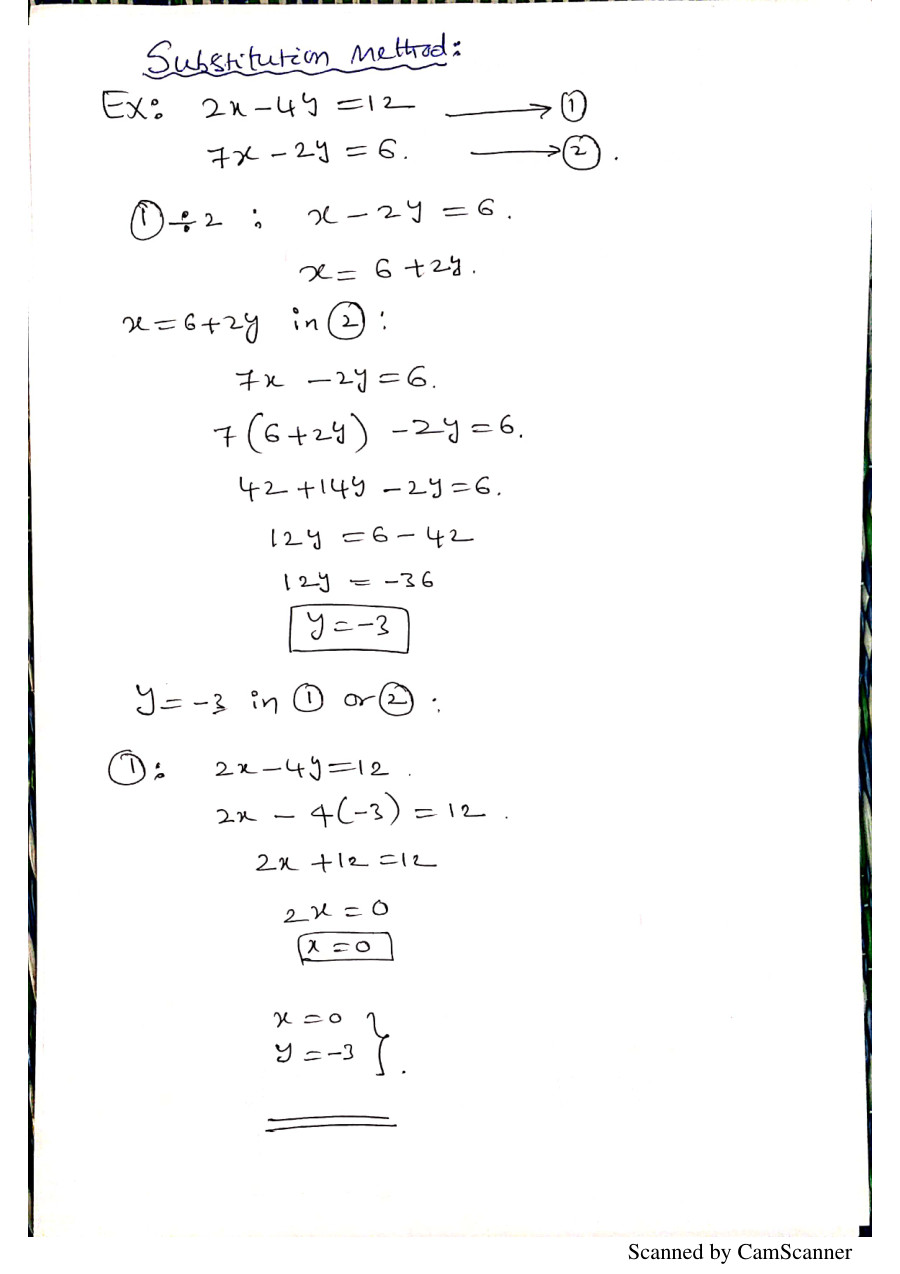 Substitution Method:
Ex: 2x - 4y = 12 ⟶ ①
7x - 2y = 6. ⟶ ②.
① ÷ 2 : x - 2y = 6.
x = 6 + 2y.
x = 6 + 2y in ② :
7x - 2y = 6.
7(6 + 2y) - 2y = 6.
42 + 14y - 2y = 6.
12y = 6 - 42
12y = -36
y = -3
y = -3 in ① or ② :
①: 2x - 4y = 12.
2x - 4(-3) = 12.
2x + 12 = 12
2x = 0
x = 0
x = 0
y = -3 }.
Scanned by CamScanner